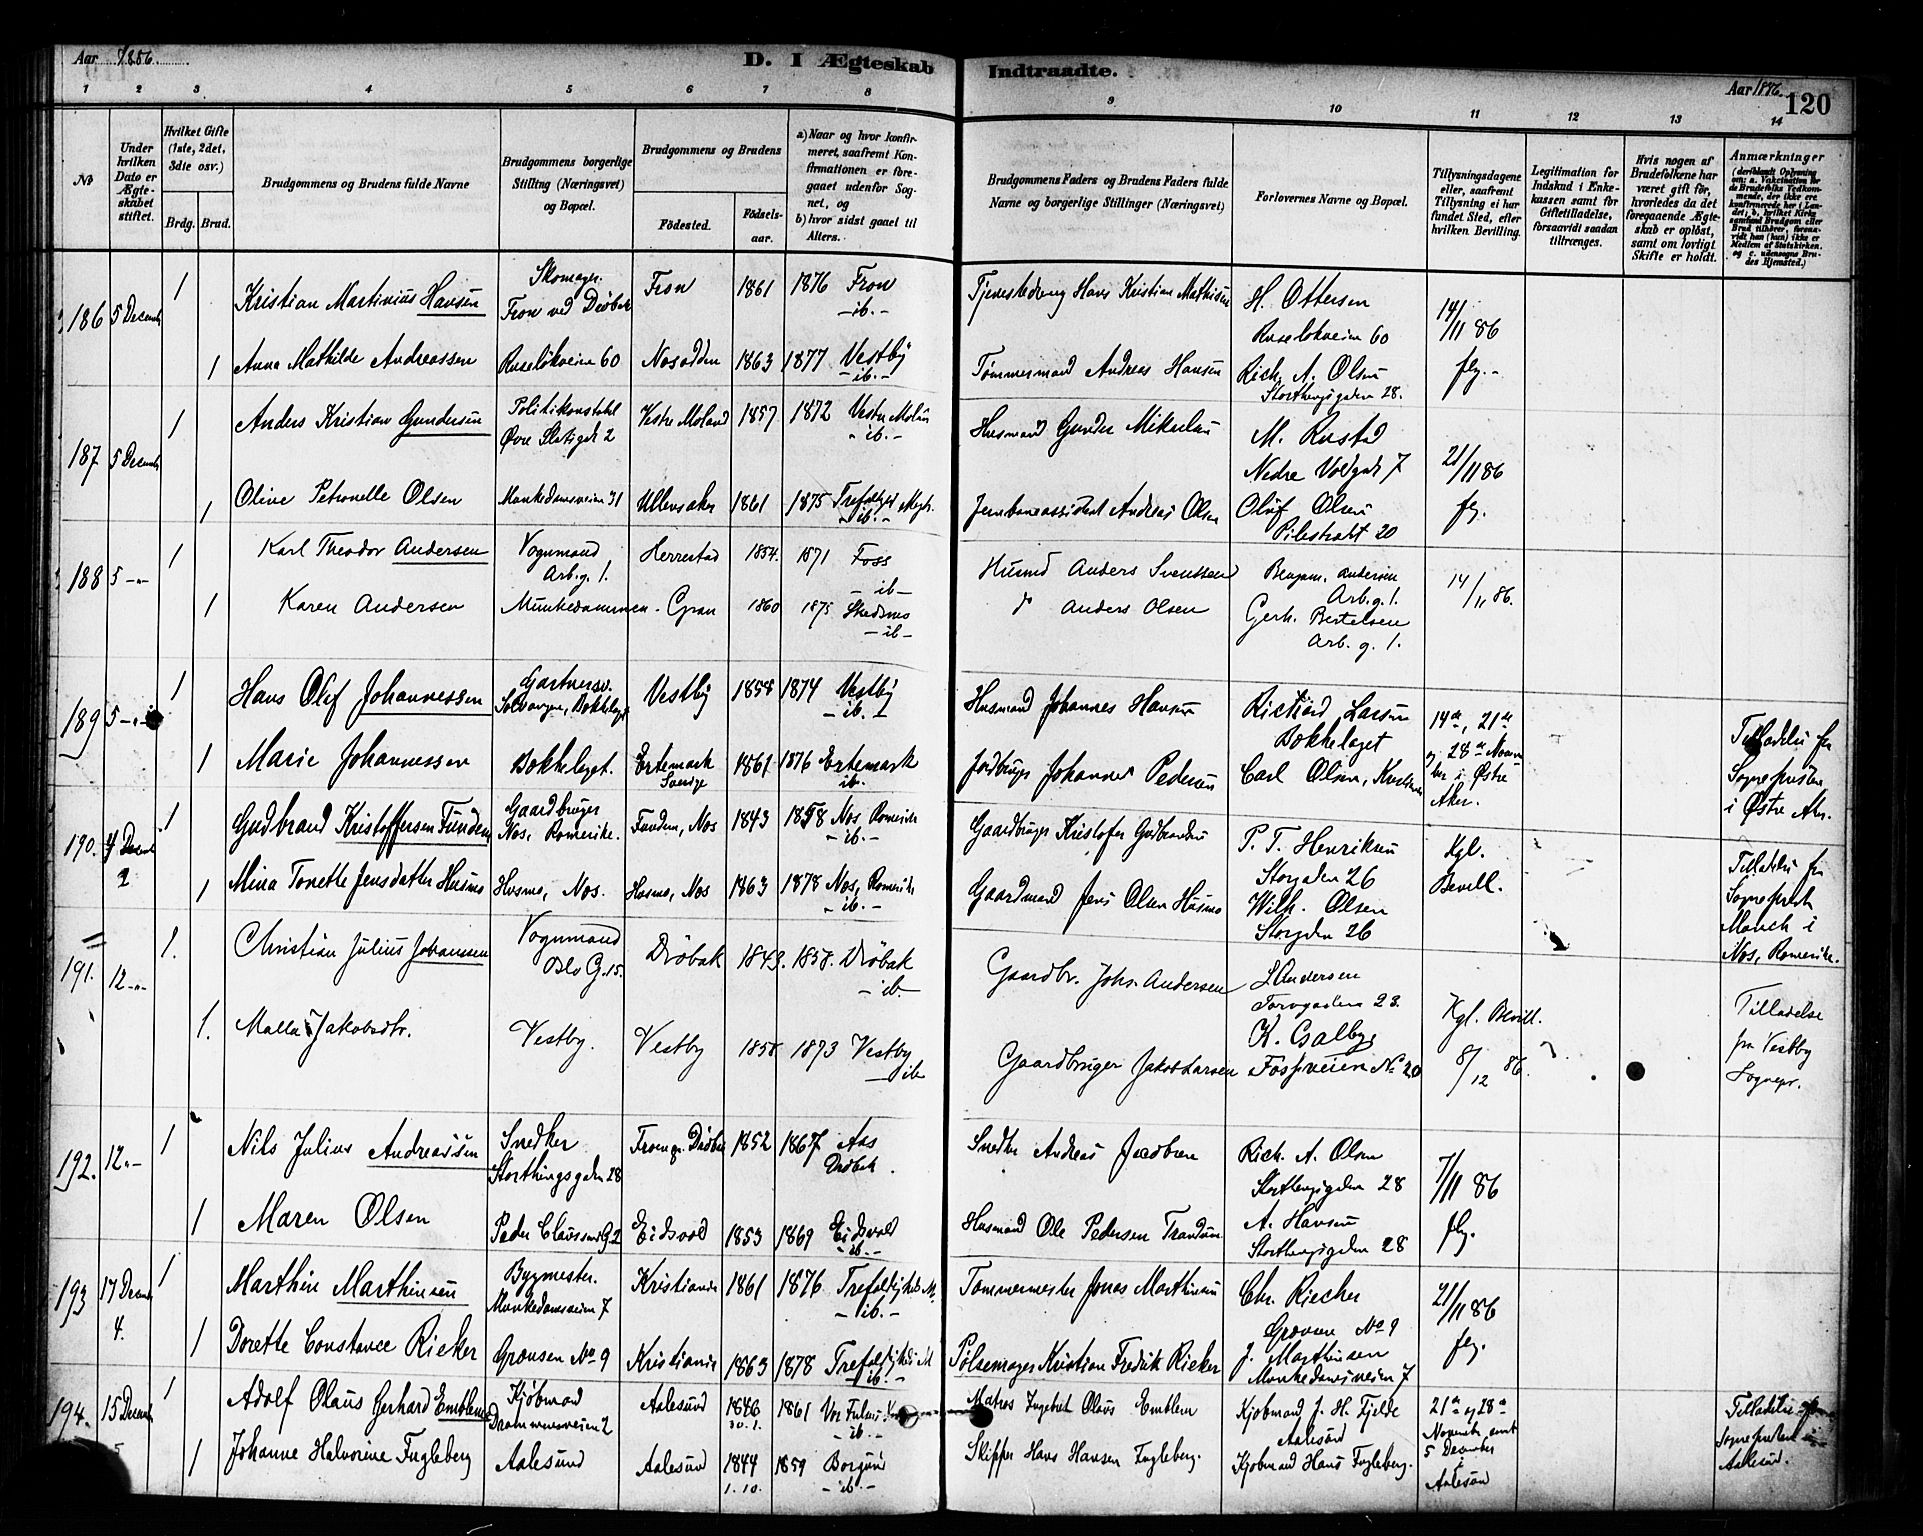 Aar 1886.
D. I Ægteskab Indtraadte.
Aar 1886.
120
1 2 3 4 5 6 7 8 9 10 11 12 13 14
No
Under hvilken Dato er Ægteskabet stiftet.
Hvilket Gifte (1ste, 2det, 3die osv.)
Brdg. Brud.
Brudgommens og Brudens fulde Navne
Brudgommens borgerlige Stilling (Næringsvei) og Bopæl.
Brudgommens og Brudens
Fødested.
Fødselsaar.
a) Naar og hvor konfirmeret, saafremt Konfirmationen er foregaaet udenfor Sognet, og
b) hvor sidst gaaet til Alters.
Brudgommens Faders og Brudens Faders fulde Navne og borgerlige Stillinger (Næringsvei)
Forlovernes Navne og Bopæl.
Tillysningsdagene eller, saafremt Tillysning ei har fundet Sted, efter hvilken Bevilling.
Legitimation for Indskud i Enkekassen samt for Giftetilladelse, forsaavidt saadan tiltrænges.
Hvis nogen af Brudefolkene har været gift før, hvorledes da det foregaaende Ægteskab er opløst, samt om lovligt Skifte er holdt.
Anmærkninger (deriblandt Oplysning om: a. Vaccination for de Brudefolks Vedkommende, der ikke ere konfirmerede her i Landet; b. hvilket Kirkesamfund Brudgom eller Brud tilhører, forsaavidt han (hun) ikke er Medlem af Statskirken, og c. udensogns Brudes Hjemsted.)
186 5 Decemb 1 Kristian Martinius Hansen Skomager. Fron ved Drøbak Fron 1861 1876 Fron -ib.- Hans Kristian Mathisen H. Ottersen Ruseløkveien 60 14/11 86
1 Anna Mathilde Andreassen Ruseløkveien 60 Nesodden 1863 1877 Vestby -ib.- Tømmermand Andreas Hansen Rich. A. Olsen Storthingsgaden 28.
187 5 Decemb 1 Anders Kristian Gundersen Politikonstabel Øvre Slotsgd. 2 Vestre Moland 1857 1872 Vestre Moland -ib.- Husmand Gunder Mikkelsen M. Rustad Nedre Voldgade 7 21/11 86
1 Olive Petronelle Olsen Munkedamsveien 31 Ullensaker 1861 1875 -ib.- Jernbaneassistent Andreas Olsen Oluf Olsen Pilestrædet 20
188 5 -"- 1 Karl Theodor Andersen Vognmand Arb.g. 1. Herrestad 1854. 1871 Foss -ib- Husmd Anders Svendsen Benjam. Andersen Arb.g. 1. 14/11 86.
1 Karen Andersen Munkedammen - Gran 1860 1875 Skedsmo -ib- Anders Olsen Gerh. Bertelsen Arb. g. 1.
189 5 -"- 1 Hans Oluf Johannessen Vestby 1858 1874 Vestby -ib.- Husmand Johannes Hansen Larsen Bakkelaget 14de, 21de og 28de Novemher i Østre Aker.
1 Marie Johannessen Bakkelaget. Ertemark Sverige 1861 1876 Ertemark ib. Jordbruger Johannes Pedersen Carl Olsen, Tilladelse fra Sognepresten i Østre Aker.
190. Decemb 1 Gudbrand Kristoffersen Funden Gaardbruger Nes, Romerike. Funden, Nes 1843 1858 Nes Romerike -ib.- Gaardbruger Kristofer Gudbrandsen P. T. Henriksen Storgaden 26 Kgl. Bevill.
1 Mina Tonette Jensdatter Husmo Husmo, Nes. Husmo, Nes 1863 1878 Nes, Romerike -ib.- Gaardmand Jens Olsen Husmo Wilh. Olsen Storgaden 26 Tilladelse fra Sogneprest Munch i Nes, Romerike.
191. 12 -"- 1. Christian Julius Johansen Vognmand Oslo G. 15. Drøbak 1843. 1858. Drøbak -ib. Gaardbr. Johs. Andersen L Andersen Torvgaden 23. Kgl. Bevill. 8/12 86.
1. Malla Jakobsdtr. Vestby. Vestby 1858 1873 Vestby -ib Gaardbruger Jakob Larsen K. Galby Fossveien No 20 Tilladelse fra Vestby Sognepr.
192. 12 -"- 1 Nils Julius Andreassen Snedker Storthingsgaden 28 1852 1867 Aas Drøbak. Snedker Andreas Jacobsen Rich. A. Olsen Storthingsgaden 28 7/11 86
1 Maren Olsen Peder Claussens G. 2 Eidsvold 1853 1869 Eidsvold -ib.- Husmand Ole Pedersen Trandum A. Hansen Storthingsgaden 28
193 17 Decemb 4. 1 Marthin Marthinsen Bygmester. Munkedamsveien 7 Kristiania 1861 1876 Trefoldigheds M. -ib.- Tømmermester Jonas Marthinsen Chr. Riecker Grænsen No 9 21/11 86
1 Dorette Constance Rieker Grænsen No 9 Kristiania 1863 1878 Trefoldigheds M -ib.- Pølsemager Kristian Fredrik Rieker J. Marthinsen Munkedamsveien 7
194. 15 Decemb 1 Adolf Olaus Gerhard Emblem Kjøbmand Drammensveien 2 Aalesund 1846 30.1. 1861 -ib.- Matros Ingebrit Olaus Emblem Kjøbmand J. H. Fjelde Aalesund 21de og 28de November samt 5 December i Aalesund Tilladelse fra Sognepresten i Aalesund.
1 Johanne Halvorine Fugleberg Aalesund Aalesund 1844 1.10. 1859 Borgund -ib.- Skipper Hans Hansen Fugleberg. Kjøbmand Hans Fugleberg.